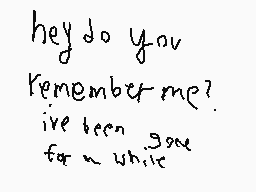 hey do you
remember me?
ive been gone
for a while